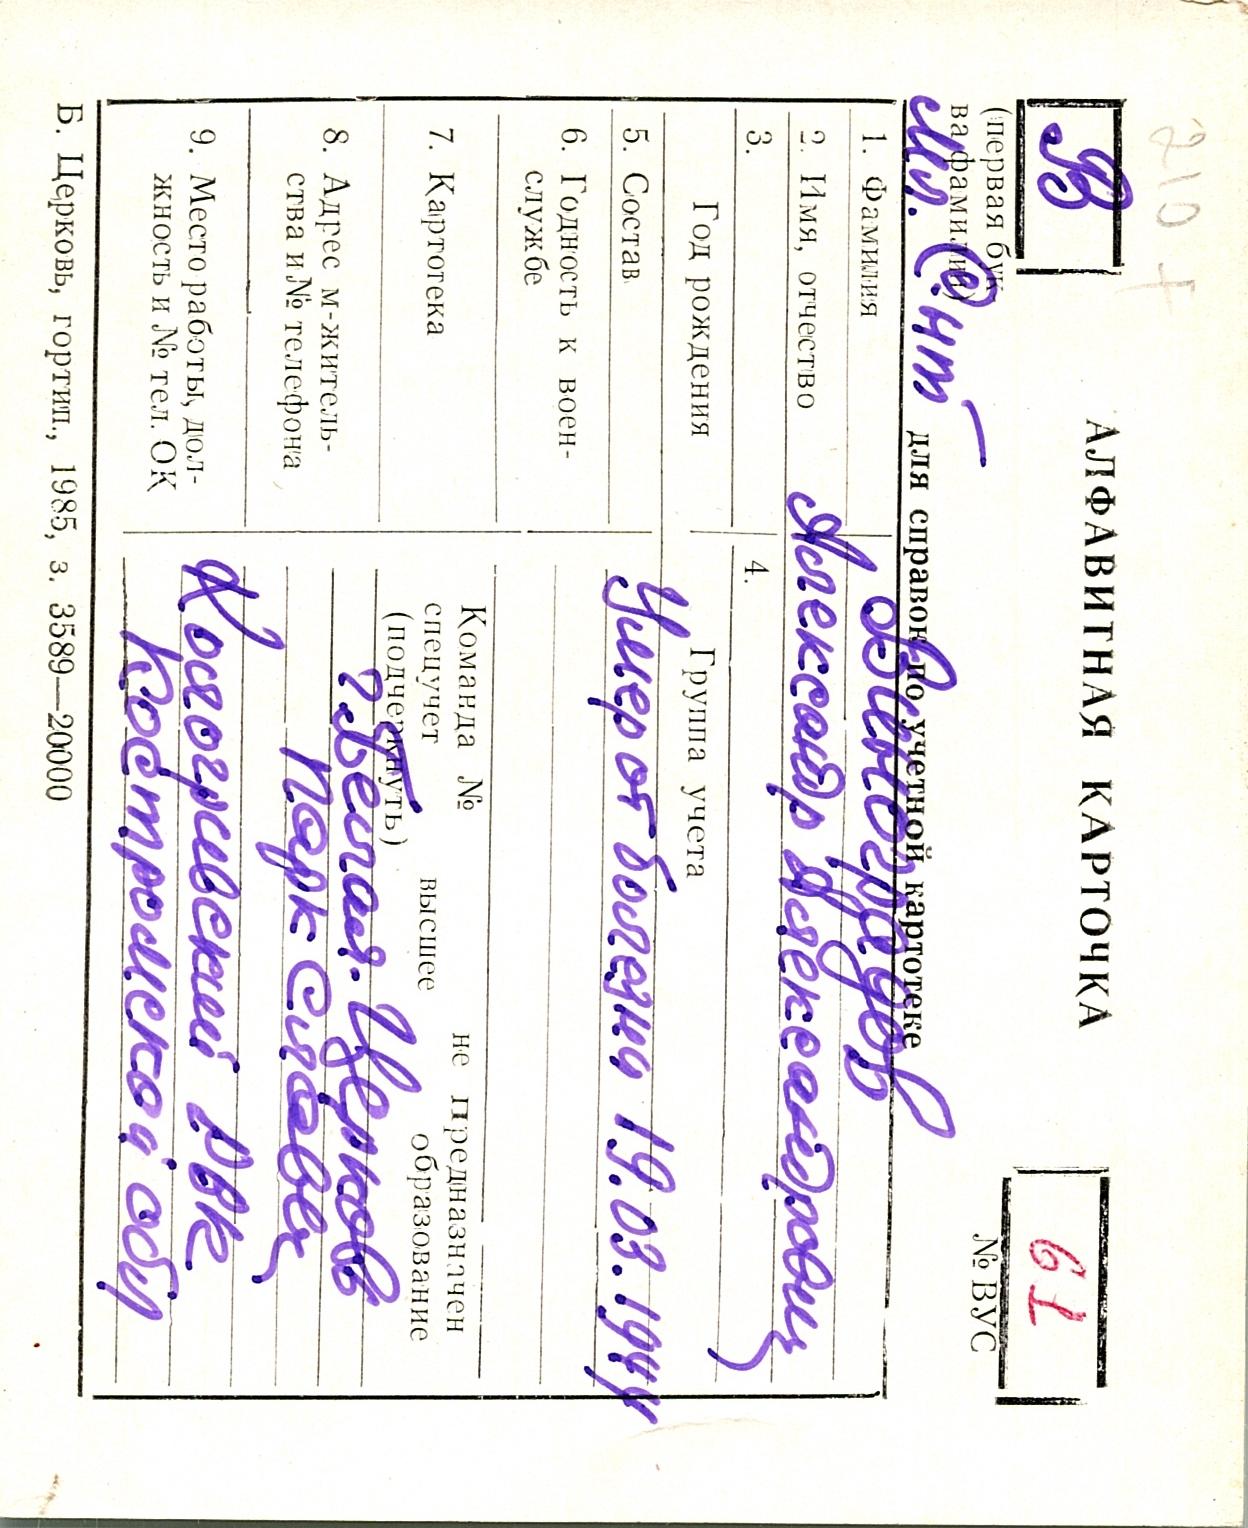 210 +
АЛФАВИТНАЯ КАРТОЧКА
В
61
(первая бук
ва фамилии)
№ ВУС
Мл. С-нт
для справок по учетной картотеке
1. Фамилия
Виноградов
2. Имя, отчество
Александр Александрович
3.
Год рождения
4.
Группа учета
5. Состав
Умер от болезни 19.03.1944
6. Годность к воен-
службе
7. Картотека
Команда № не предназначен
спецучет высшее образование
(подчеркнуть)
8. Адрес м-житель-
ства и № телефона
г. Белая-Церковь
парк Славы
9. Место работы, дол-
жность и № тел. ОК
Кологривский РВК
Костромской обл
Б. Церковь, гортип., 1985, з. 3589—20000